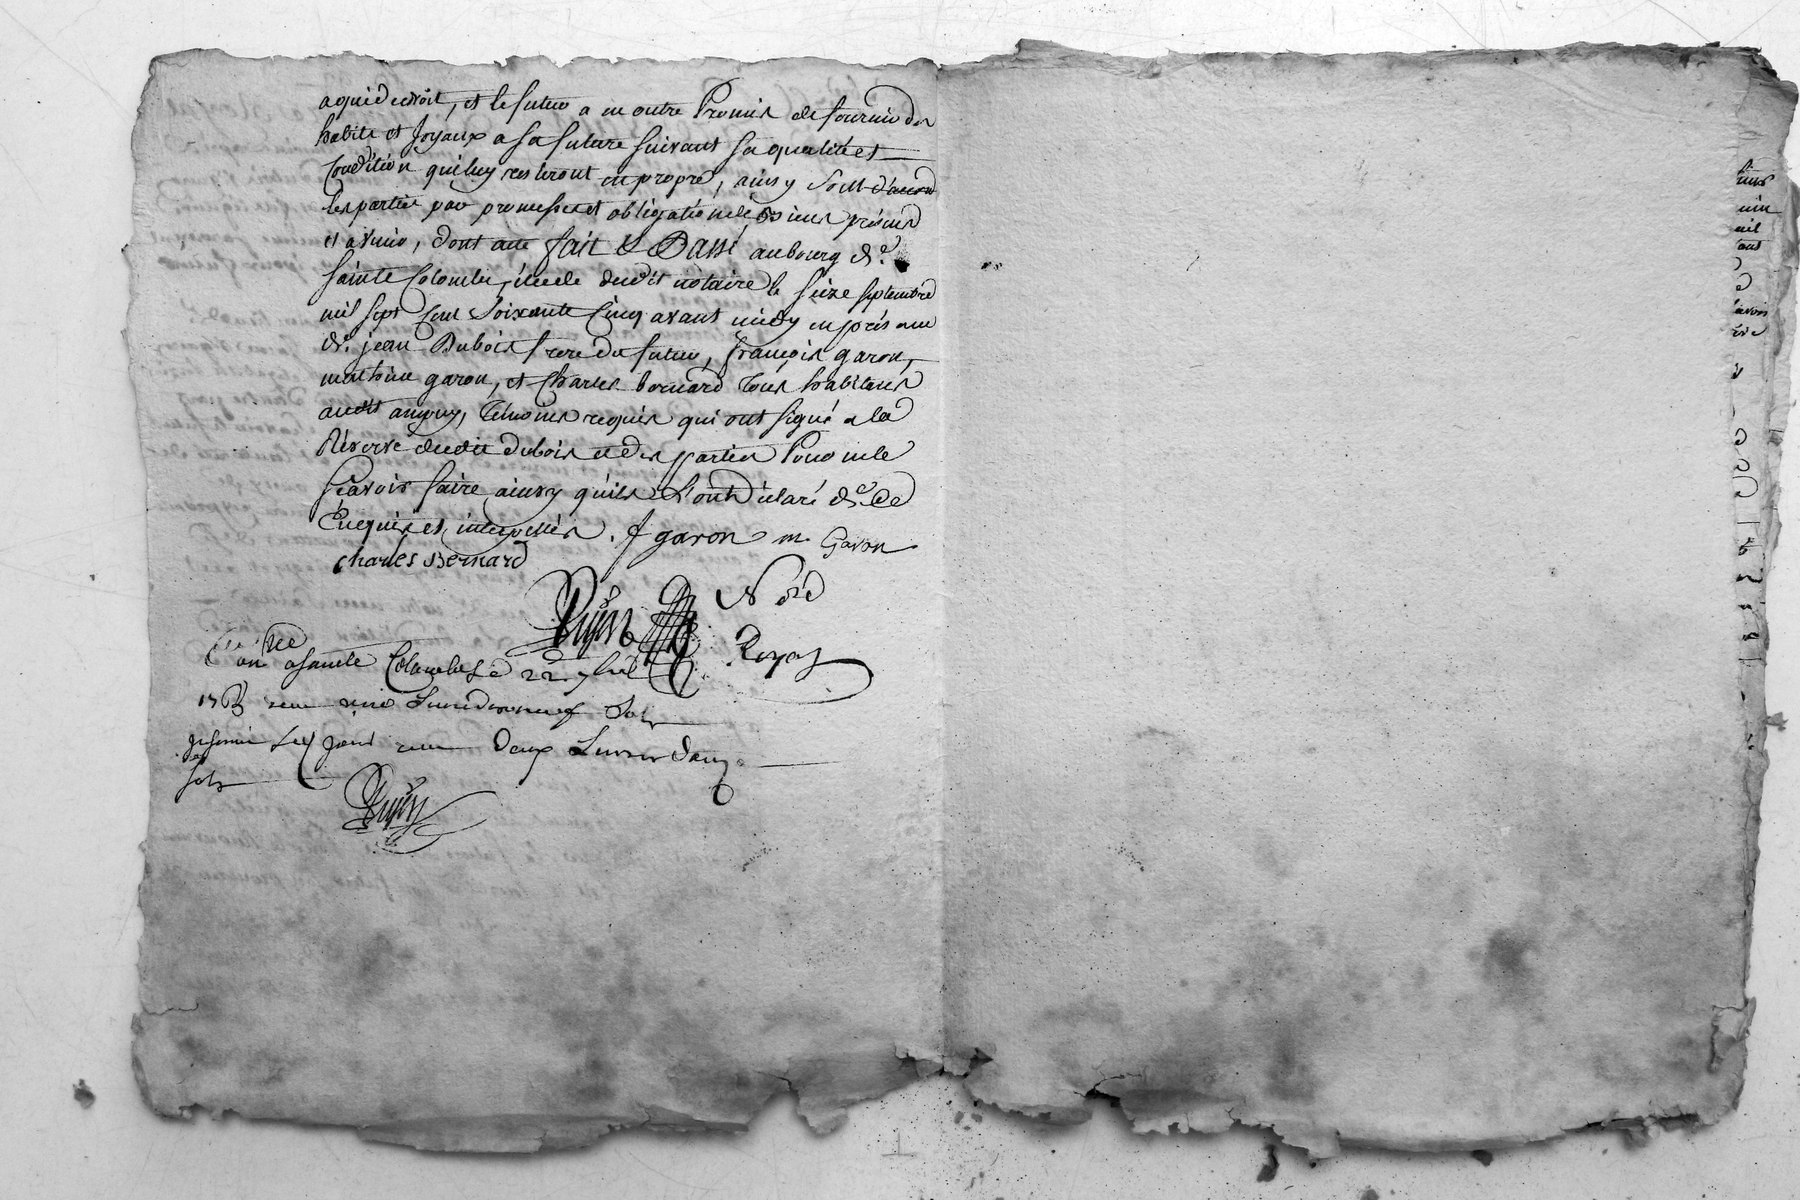 a qui de droit, et le futur a en outre Promis de fournir des
habits et Joyaux a sa future suivant sa qualité et
Condition qui luy resteront en propre, ainsy sont d'accord
les parties par promesses et obligation de biens présens
et avenir, dont acte fait & Passé au bourg de
Sainte Colombe, étude dudit notaire le seize septembre
mil sept Cent Soixante Cinq avant midy en présence
de jean Dubois frere du futur, françois garon,
mathieu garon, et Charles bernard tous habitans
audit Témoins requis qui ont signé a la
Réserve dudit dubois et des parties Pour ne le
sçavoir faire ainsy qu'ils L'ont déclaré de ce
Enquis et interpellés. f garon m Garon
charles Bernard
Noré
Royal
a sainte Colombe Le 22 7bre
1765 reçu neuf Sols
reçu Deux Livres
sols